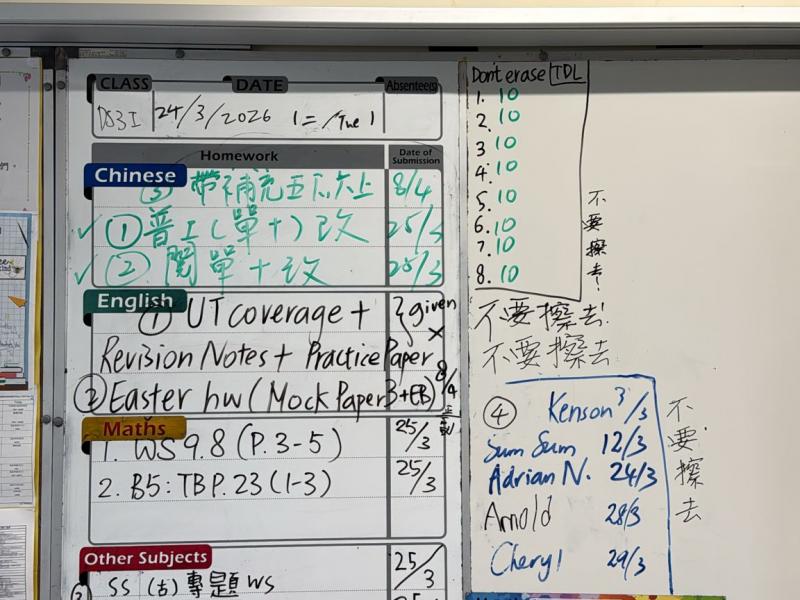 CLASS DATE Absentee(s)
24/3/2026 1= /Tue 1
Homework Date of Submission
Chinese
③ 帶補充五下、六上 8/4
✓ ① 普工(單十)改 25/3
✓ ② 閱單十改 25/3
English
① UT coverage + } given
Revision Notes + Practice Paper ×
② Easter hw (Mock Paper 3 + EB) 8/4
Maths
1. WS 9.8 (P.3-5) 25/3
2. B5: TB P.23 (1-3) 25/3
Other Subjects
SS (古) 專題 WS 25/3
Don't erase TDL
1. 10
2. 10
3. 10
4. 10
5. 10
6. 10
7. 10
8. 10
不要擦去!
不要擦去!
不要擦去
④ Kenson 3/3
Sum Sum 12/3
Adrian N. 24/3
Arnold 28/3
Cheryl 29/3
不要擦去